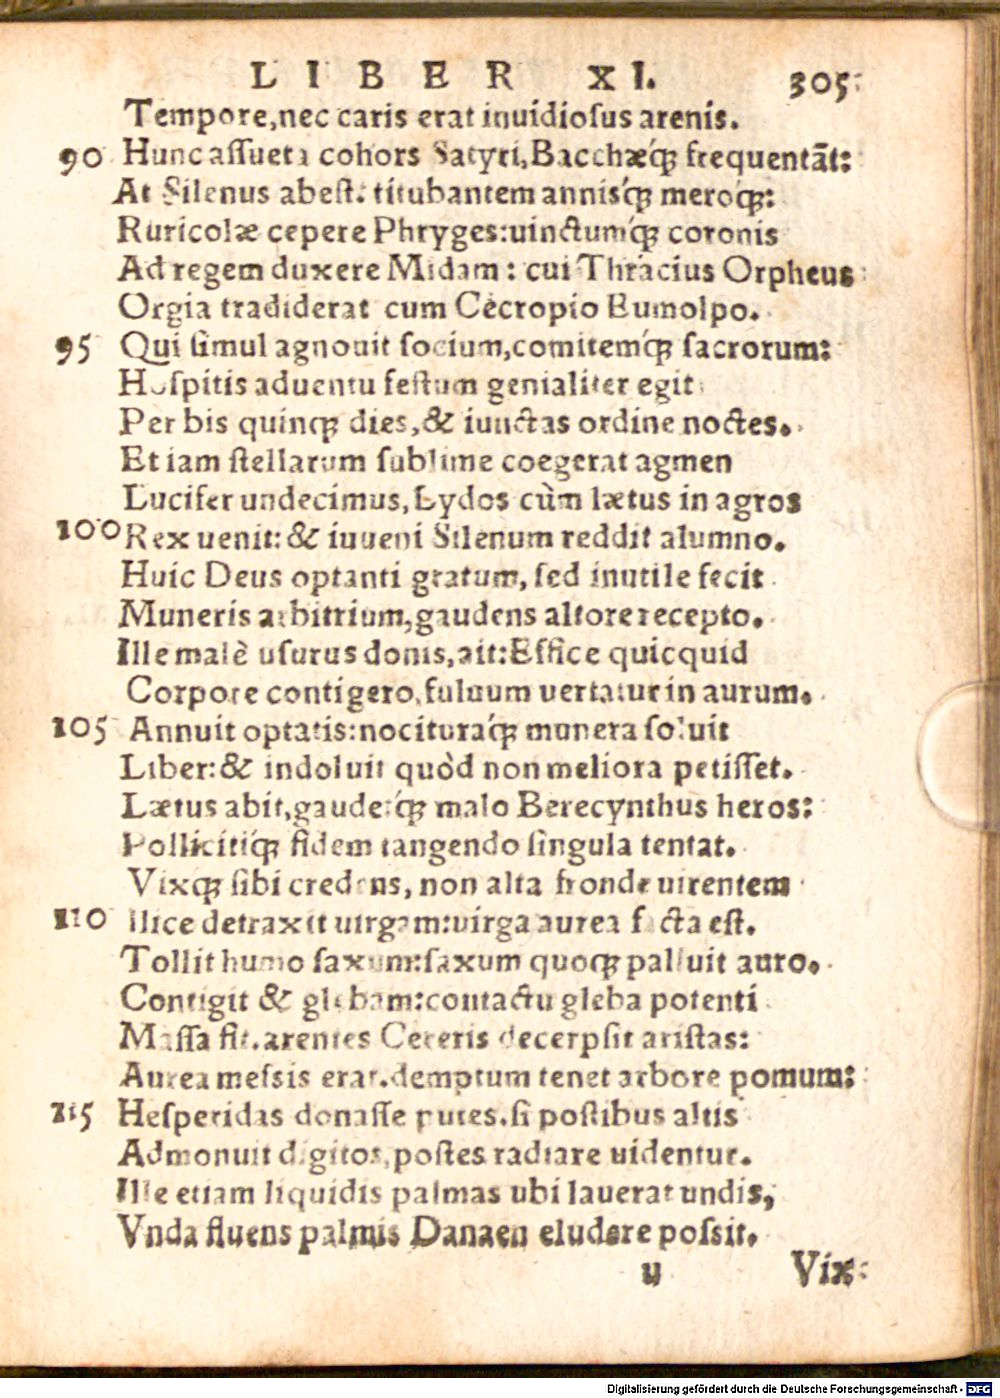 LIBER XI. 305
Tempore, nec caris erat inuidiosus arenis.
90 Hunc assueta cohors Satyri, Bacchæq́; frequentãt:
At Silenus abest: titubantem annisq́; meroq́;:
Ruricolæ cepere Phryges: uinctumq́; coronis
Ad regem duxere Midam: cui Thracius Orpheus
Orgia tradiderat cum Cecropio Eumolpo.
95 Qui simul agnouit socium, comitemq́; sacrorum:
Hospitis aduentu festum genialiter egit
Per bis quinq; dies, & iunctas ordine noctes.
Et iam stellarum sublime coegerat agmen
Lucifer undecimus, Lydos cùm lætus in agros
100 Rex uenit: & iuueni Silenum reddit alumno.
Huic Deus optanti gratum, sed inutile fecit
Muneris arbitrium, gaudens altore recepto.
Ille malè usurus donis, ait: Effice quicquid
Corpore contigero, fuluum uertatur in aurum.
105 Annuit optatis: nocituraq́; munera soluit
Liber: & indoluit quòd non meliora petisset.
Lætus abit, gaudetq́; malo Berecynthus heros:
Pollicitiq́; fidem tangendo singula tentat.
Vixq; sibi credens, non alta fronde uirentem
110 Ilice detraxit uirgam: uirga aurea facta est.
Tollit humo saxum: saxum quoq; palluit auro.
Contigit & glebam: contactu gleba potenti
Massa fit. arentes Cereris decerpsit aristas:
Aurea messis erat. demptum tenet arbore pomum:
115 Hesperidas donasse putes. si postibus altis
Admonuit digitos, postes radiare uidentur.
Ille etiam liquidis palmas ubi lauerat undis,
Vnda fluens palmis Danaen eludere possit.
u Vix
Digitalisierung gefördert durch die Deutsche Forschungsgemeinschaft - DFG